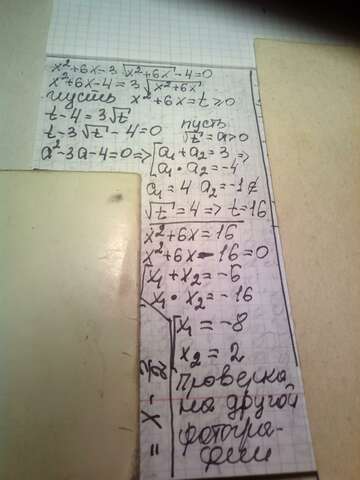 x²+6x-3√x²+6x-4=0
x²+6x-4=3√x²+6x
пусть x²+6x=t≥0
t-4=3√t
пусть
t-3√t-4=0
√t=a>0
a²-3a-4=0=>[a₁+a₂=3 =>
[a₁·a₂=-4
a₁=4 a₂=-1∉
√t=4=>t=16
x²+6x=16
x²+6x-16=0
x₁+x₂=-6
x₁·x₂=-16
x₁=-8
x₂=2
Проверка
на другой
фотогра-
фии